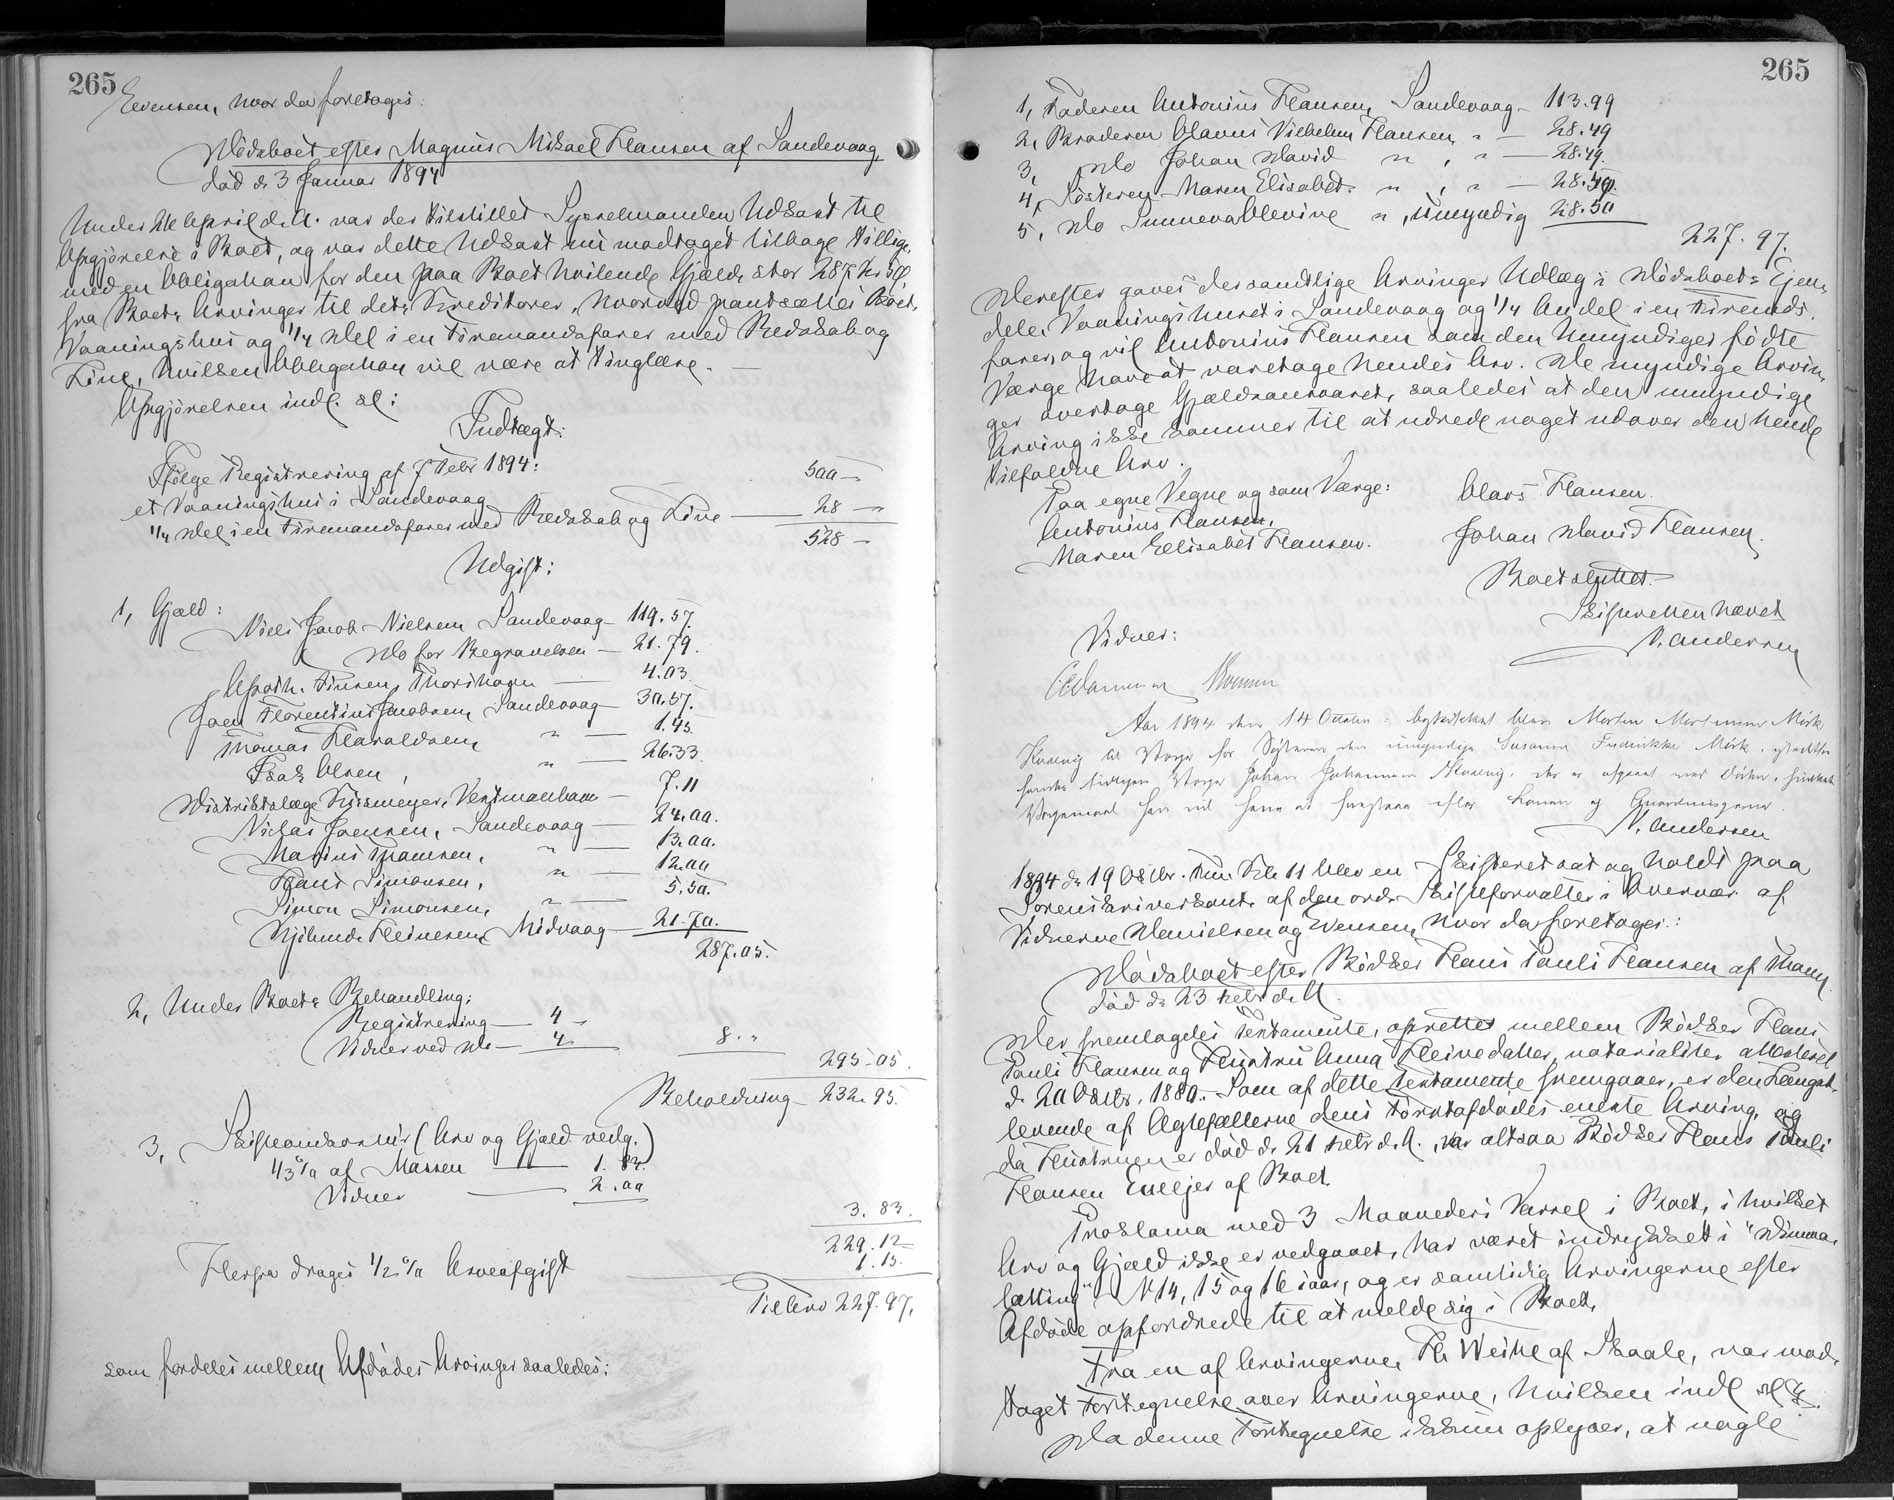 265
Evensen, hvor da foretoges:
Dödsboet efter Magnus Mikael Hansen af Sandevaag,
död d. 3 Januar 1894
Under 26 April d. A. var der tilstillet Sysselmanden Udkast til
Opgjörelse i Boet, og var dette Udkast nu modtaget tilbage tillige
med en Obligation for den paa Boet hvilende Gjæld, stor 287 Kr 50
fra Boets Arvinger til dets Kreditorer, hvorved pantsættes Boets
Vaaningshus og 1/4 Del i en Firemandsfarer med Redskab og
Line, hvilken Obligation vil være at tinglæse. —
Opgjörelsen indl. sl:
Indtægt:
Ifölge Registrering af 7 Febr 1894:
et Vaaningshus i Sandevaag 500 —
1/4 Del i en Firemandsfarer med Redskab og Line — 28 — "
528 —
Udgift:
1, Gjæld:
Niels Jacob Nielsen, Sandevaag — 119.57.
Do for Begravelsen — 21.79.
Apoth. Finsen, Thorshavn — 4.03
Joen Florentinus Jacobsen, Sandevaag — 30.57.
Thomas Haraldsen, " — 1.45
Isak Olsen, " — 26.33
Distriktslæge Kissmeyer, Vestmanhavn — 7.11
Niclas Joensen, Sandevaag — 24.00.
Marius Thomsen, " — 13.00.
Hans Simonsen, " — 12.00
Simon Simonsen, " — 5.50.
Heinesen, Midvaag — 21.70.
287.05.
2, Under Boets Behandling:
Registrering — 4 —
Vidner ved Do — 4 — 8. "
295.05.
Beholdning — 232.95.
3, Skifteomkostn. (Arv og Gjæld vedg.)
1/3 % af Massen — 1.83.
Vidner — 2.00
3.83.
229.12
Herfra drages 1/2 % Arveafgift 1.15.
Til Arv 227.97.
som fordeles mellem Afdödes Arvinger saaledes:
265
1, Faderen Antonius Hansen, Sandevaag — 113.99
2, Broderen Olavus Vilhelm Hansen " — 28.49
3, Do Johan David " , " — 28.49.
4, Sösteren Maren Elisabet " , " — 28.50.
5, Do Sunneva Olevine " , umyndig 28.50
227.97.
Derefter gaves der samtlige Arvinger Udlæg i Dödsboets Ejen
dele, Vaaningshuset i Sandevaag og 1/4 Andel i en Firemds
farer, og vil Antonius Hansen som den Umyndiges födte
Værge have at varetage hendes Arv. De myndige Arvin
ger overtage Gjældsansvaret, saaledes at den umyndige
Arving ikke kommer til at udrede noget udover den hende
tilfaldne Arv.
Paa egne Vegne og som Værge: Olavs Hansen.
Antonius Hansen,
Maren Elisabet Hansen. Johan David Hansen.
Boet sluttet.
Skifteretten hævet
N. Andersen
Vidner:
Aar 1894 den 14 October: beskikket blev Morten Mortensen Mörk,
til Værge for Sösteren den umyndige Susanne Fredrikke Mörk, istedetfor
hendes tidligere Værge Johan Johannesen der er afgaaet ved Döden, hvilket
Værgemaal han vil have at forestaa efter Loven og Anordningerne.
N. Andersen
1894 d. 19 Oktbr. Kl. 11 blev en Skifteret sat og holdt paa
Sorenskriverkont. af den ord. Skifteforvalter i Overvær af
Vidnerne Danielsen og Evensen, hvor da foretoges:
Dödsboet efter Bödker Hans Pauli Hansen af Thavn,
död d. 23 Febr d. A.
Der fremlagdes Testamente, oprettet mellem Bödker Hans
Pauli Hansen og Hustru Anna Heinedatter, notarialiter attesteret
d. 20 Oktbr. 1880. Som af dette Testamente fremgaaer, er den Længst
levende af Ægtefællerne dens förstafdödes eneste Arving, og
da Hustruen er död d. 21 Febr d. A., var altsaa Bödker Hans Pauli
Hansen Eneejer af Boet.
Proklama med 3 Maaneders Varsel i Boet, i hvilket
Arv og Gjæld ikke er vedgaaet, har været indrykket i "Dimma
lætting" N 14, 15 og 16 iaar, og er samtidig Arvingerne efter
Afdöde opfordrede til at melde sig i Boet.
Fra en af Arvingerne, H. Weihe af Skaale, var mod
taget Fortegnelse over Arvingerne, hvilken indl.
Da denne Fortegnelse ikkun oplyser, at nogle